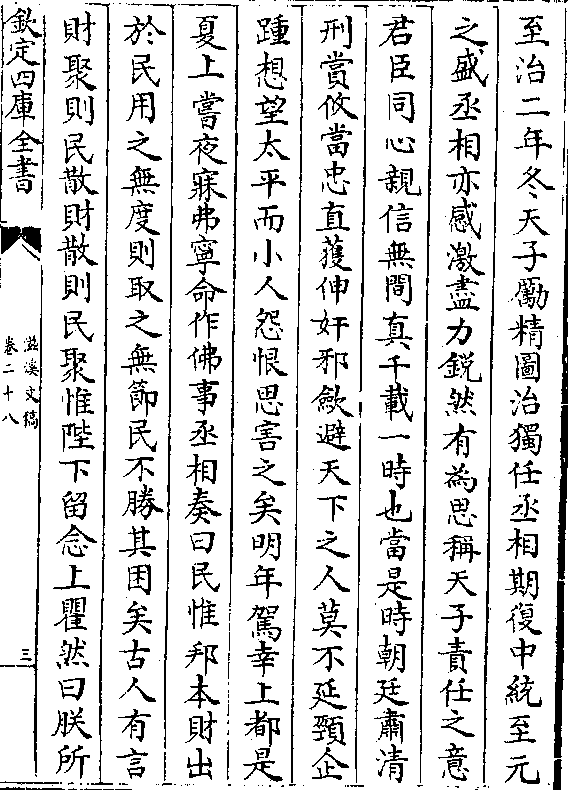 至治二年冬天子勵精圖治獨任丞相期復中統至元
之盛丞相亦感激盡力銳然有為思稱天子責任之意
君臣同心親信無間真千載一時也當是時朝廷肅清
刑賞攸當忠直獲伸奸邪歛避天下之人莫不延頸企
踵想望太平而小人怨恨思害之矣明年駕幸上都是
夏上嘗夜寐弗寧命作佛事丞相奏曰民惟邦本財出
於民用之無度則取之無節民不勝其困矣古人有言
財聚則民散財散則民聚惟陛下留念上瞿然曰朕所
欽定四庫全書
滋溪文稿
卷二十八
三